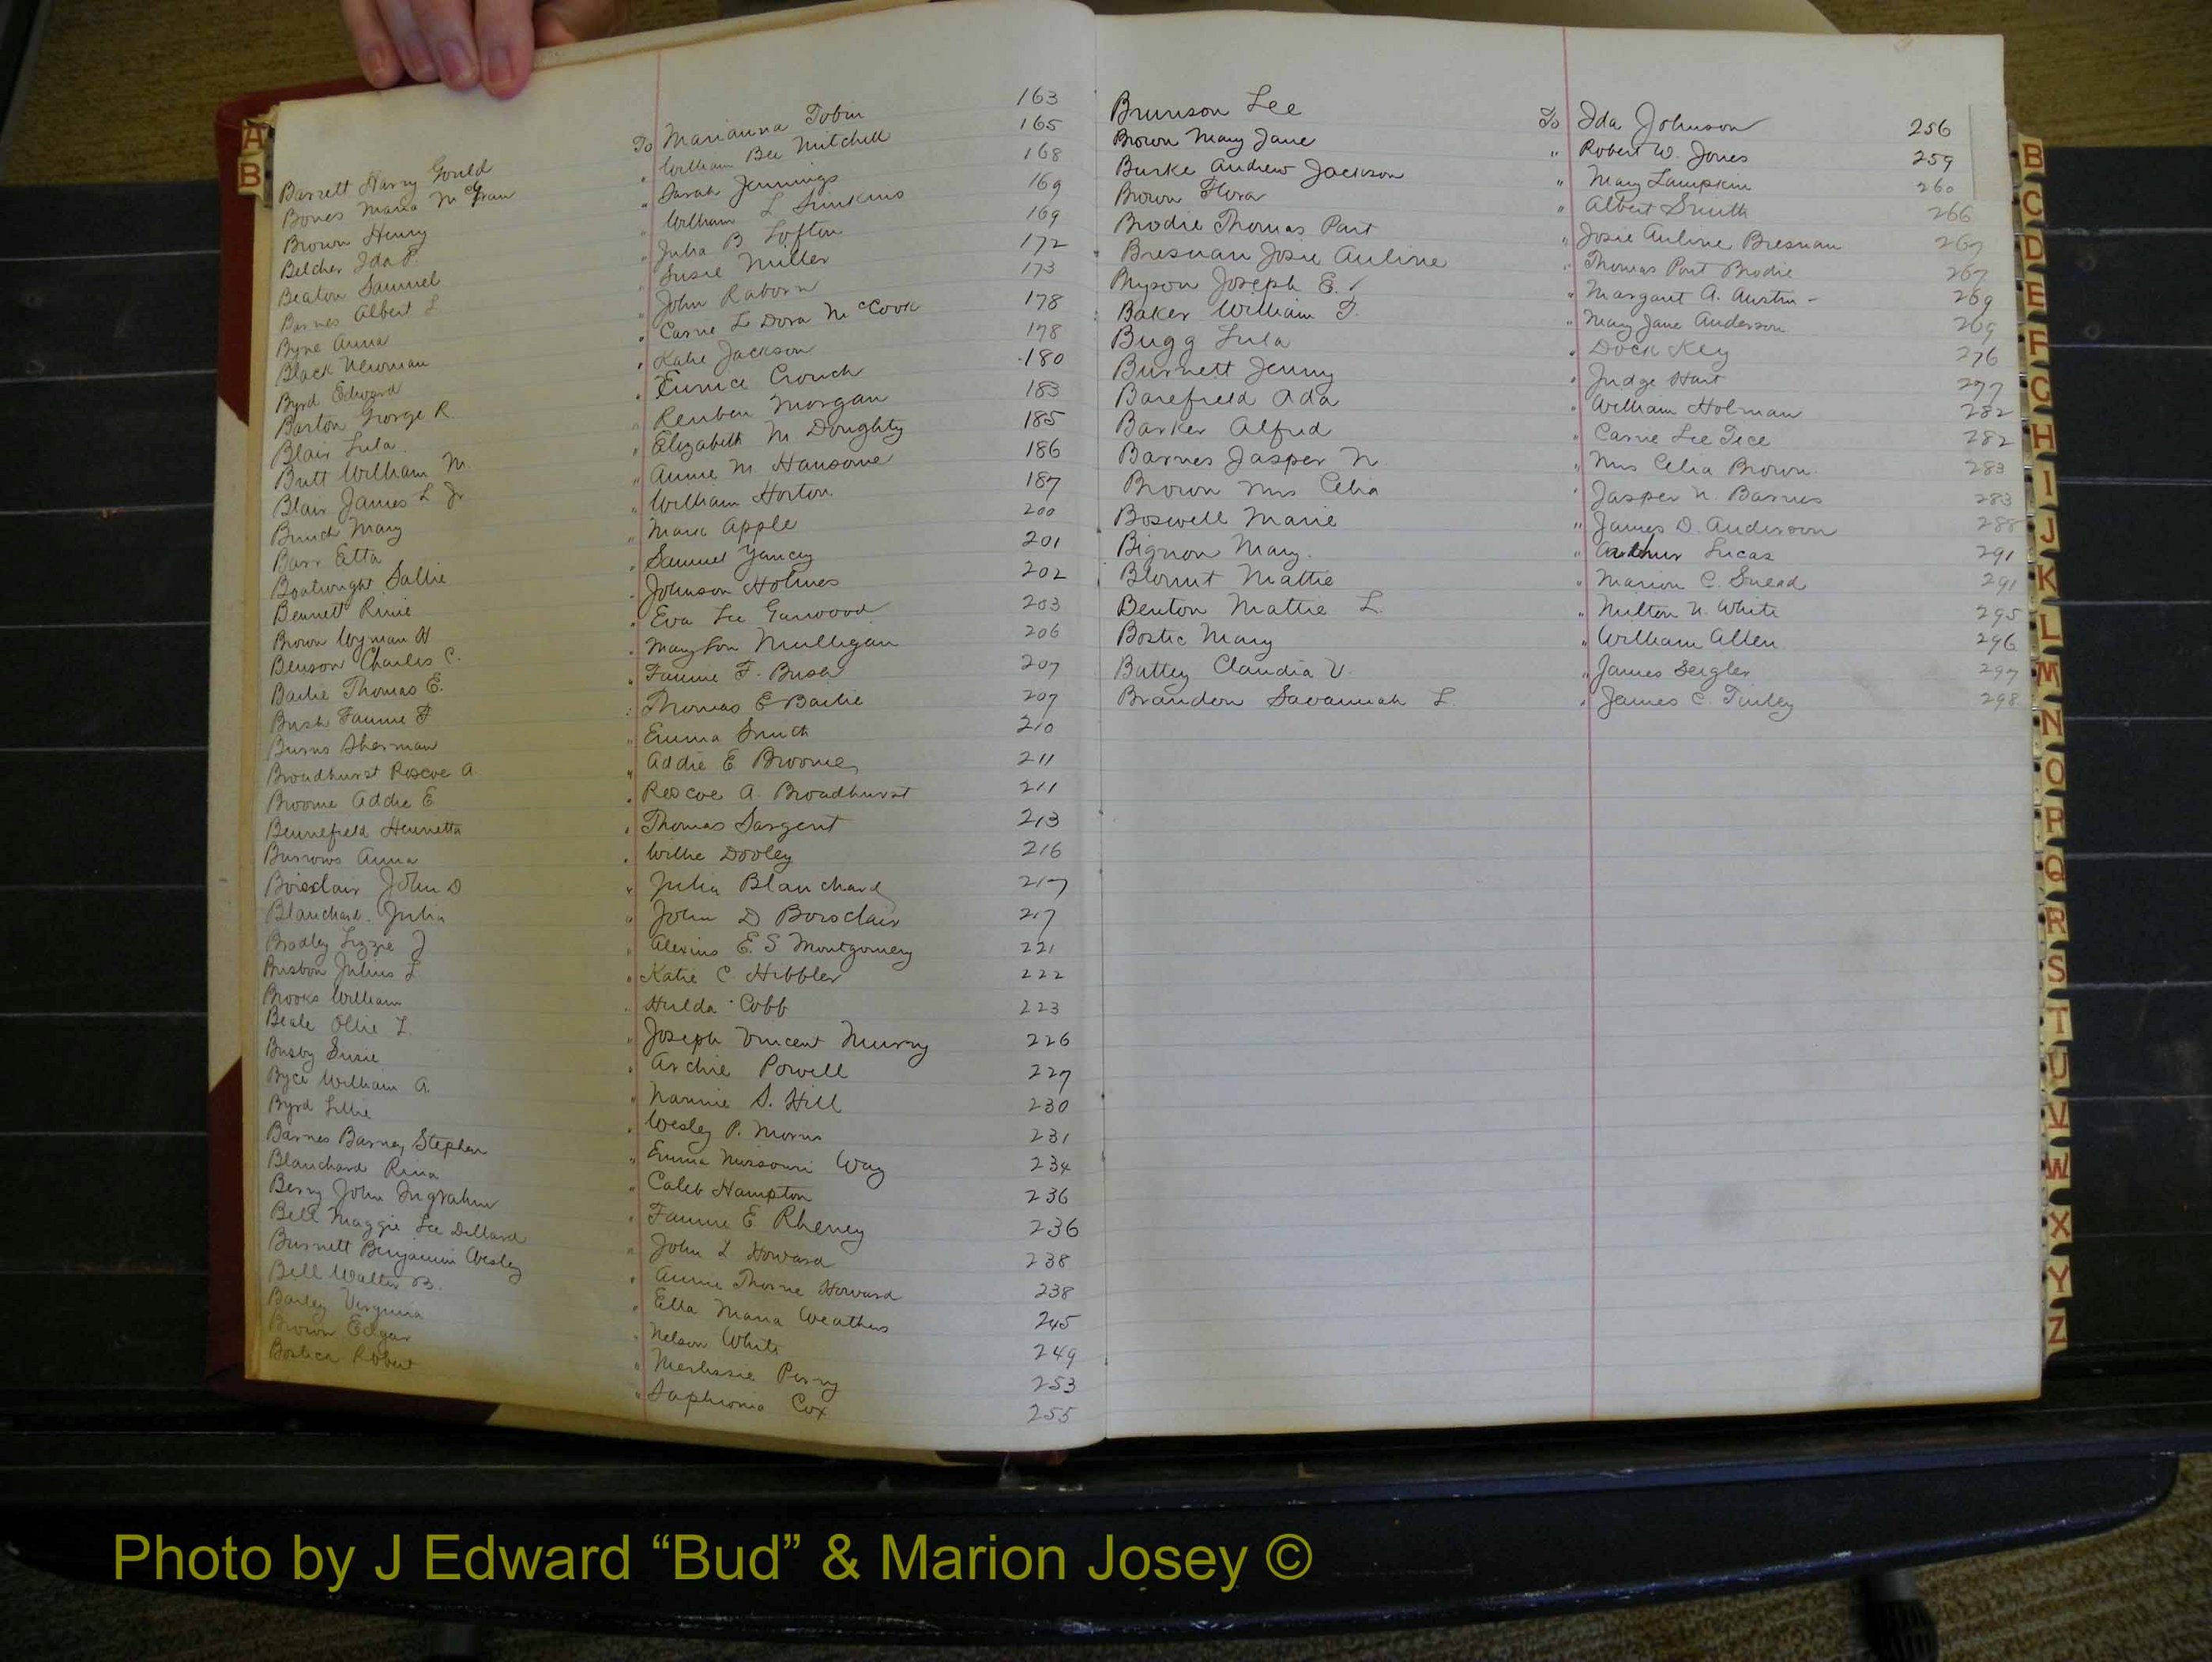 A
B
Barrett Harry Gould To Marianna Tobin 163
Bones Maria McGran " William Bee Mitchell 165
Brown Henry " Sarah Jennings 168
Belcher Ida P. " William L Simkins 169
Beaton Samuel " Julia B Lofton 169
Barnes Albert L " Susie Miller 172
Byne Anna " John Raborn 173
Black Newman " Carrie L Dora McCook 178
Byrd Edward " Katie Jackson 178
Barton George R " Eunice Crouch 180
Blair Lula " Reuben Morgan 183
Butt William M. " Elizabeth M Doughty 185
Blair James L Jr " Annie M. Hansome 186
Bunch Mary " William Horton 187
Barr Etta " Mark Apple 200
Boatwright Sallie " Samuel Yancey 201
Bennett Rinie " Johnson Holmes 202
Brown Wyman H " Eva Lee Garwood 203
Benson Charles C. " Mary Lou Mulligan 206
Bailie Thomas E. " Fannie F. Bush 207
Bush Fannie F " Thomas E Bailie 207
Burns Sherman " Emma Smith 210
Broadhurst Roscoe A " Addie E Broome 211
Broome Addie E " Roscoe A. Broadhurst 211
Bennefield Henrietta " Thomas Sargent 213
Burrows Anna " Willie Dooley 216
Boisclair John D " Julia Blanchard 217
Blanchard Julia " John D Boisclair 217
Bradley Lizzie J " Alexius E. S Montgomery 221
Busbon Julius L " Katie C. Hibbler 222
Brooks William " Hulda Cobb 223
Beale Ollie L. " Joseph Vincent Murry 226
Busby Susie " Archie Powell 227
Byce William A. " Nannie S. Hill 230
Byrd Lillie " Wesley P. Morris 231
Barnes Barney Stephen " Emma Missouri Way 234
Blanchard Rina " Caleb Hampton 236
Berry John Ingraham " Fannie E. Rheney 236
Bell Maggie Lee Dillard " John L. Howard 238
Burnett Benjamin Wesley " Annie Thorne Howard 238
Bell Walter B. " Ella Maria Weathers 245
Bailey Virginia " Nelson White 249
Brown Edgar " Merlissie Perry 253
Bostick Robert " Saphronia Cox 255
Brunson Lee To Ida Johnson 256
Brown Mary Jane " Robert W. Jones 259
Burke Andrew Jackson " Mary Lampkin 260
Brown Flora " Albert Smith 266
Brodie Thomas Part " Josie Auline Bresnan 267
Bresnan Josie Auline " Thomas Part Brodie 267
Bryson Joseph E. " Margaret A. Austin - 269
Baker William T. " Mary Jane Anderson 269
Bugg Lula " Dock Key 276
Burnett Jenny " Judge Hart 277
Barefield Ada " William Holman 282
Barker Alfred " Carrie Lee Tice 282
Barnes Jasper N. " Mrs Celia Brown 283
Brown Mrs Celia " Jasper N. Barnes 283
Boswell Marie " James D. Anderson 288
Bignon Mary. " Arthur Lucas 291
Blount Mattie " Marion C. Snead 291
Benton Mattie L. " Milton N. White 295
Bostic Mary " William Allen 296
Battey Claudia V. " James Seigler 297
Brandon Savannah L. " James C. Turley 298
B
C
D
E
F
G
H
I
J
K
L
M
N
O
P
Q
R
S
T
U
V
W
X
Y
Z
Photo by J Edward “Bud” & Marion Josey ©